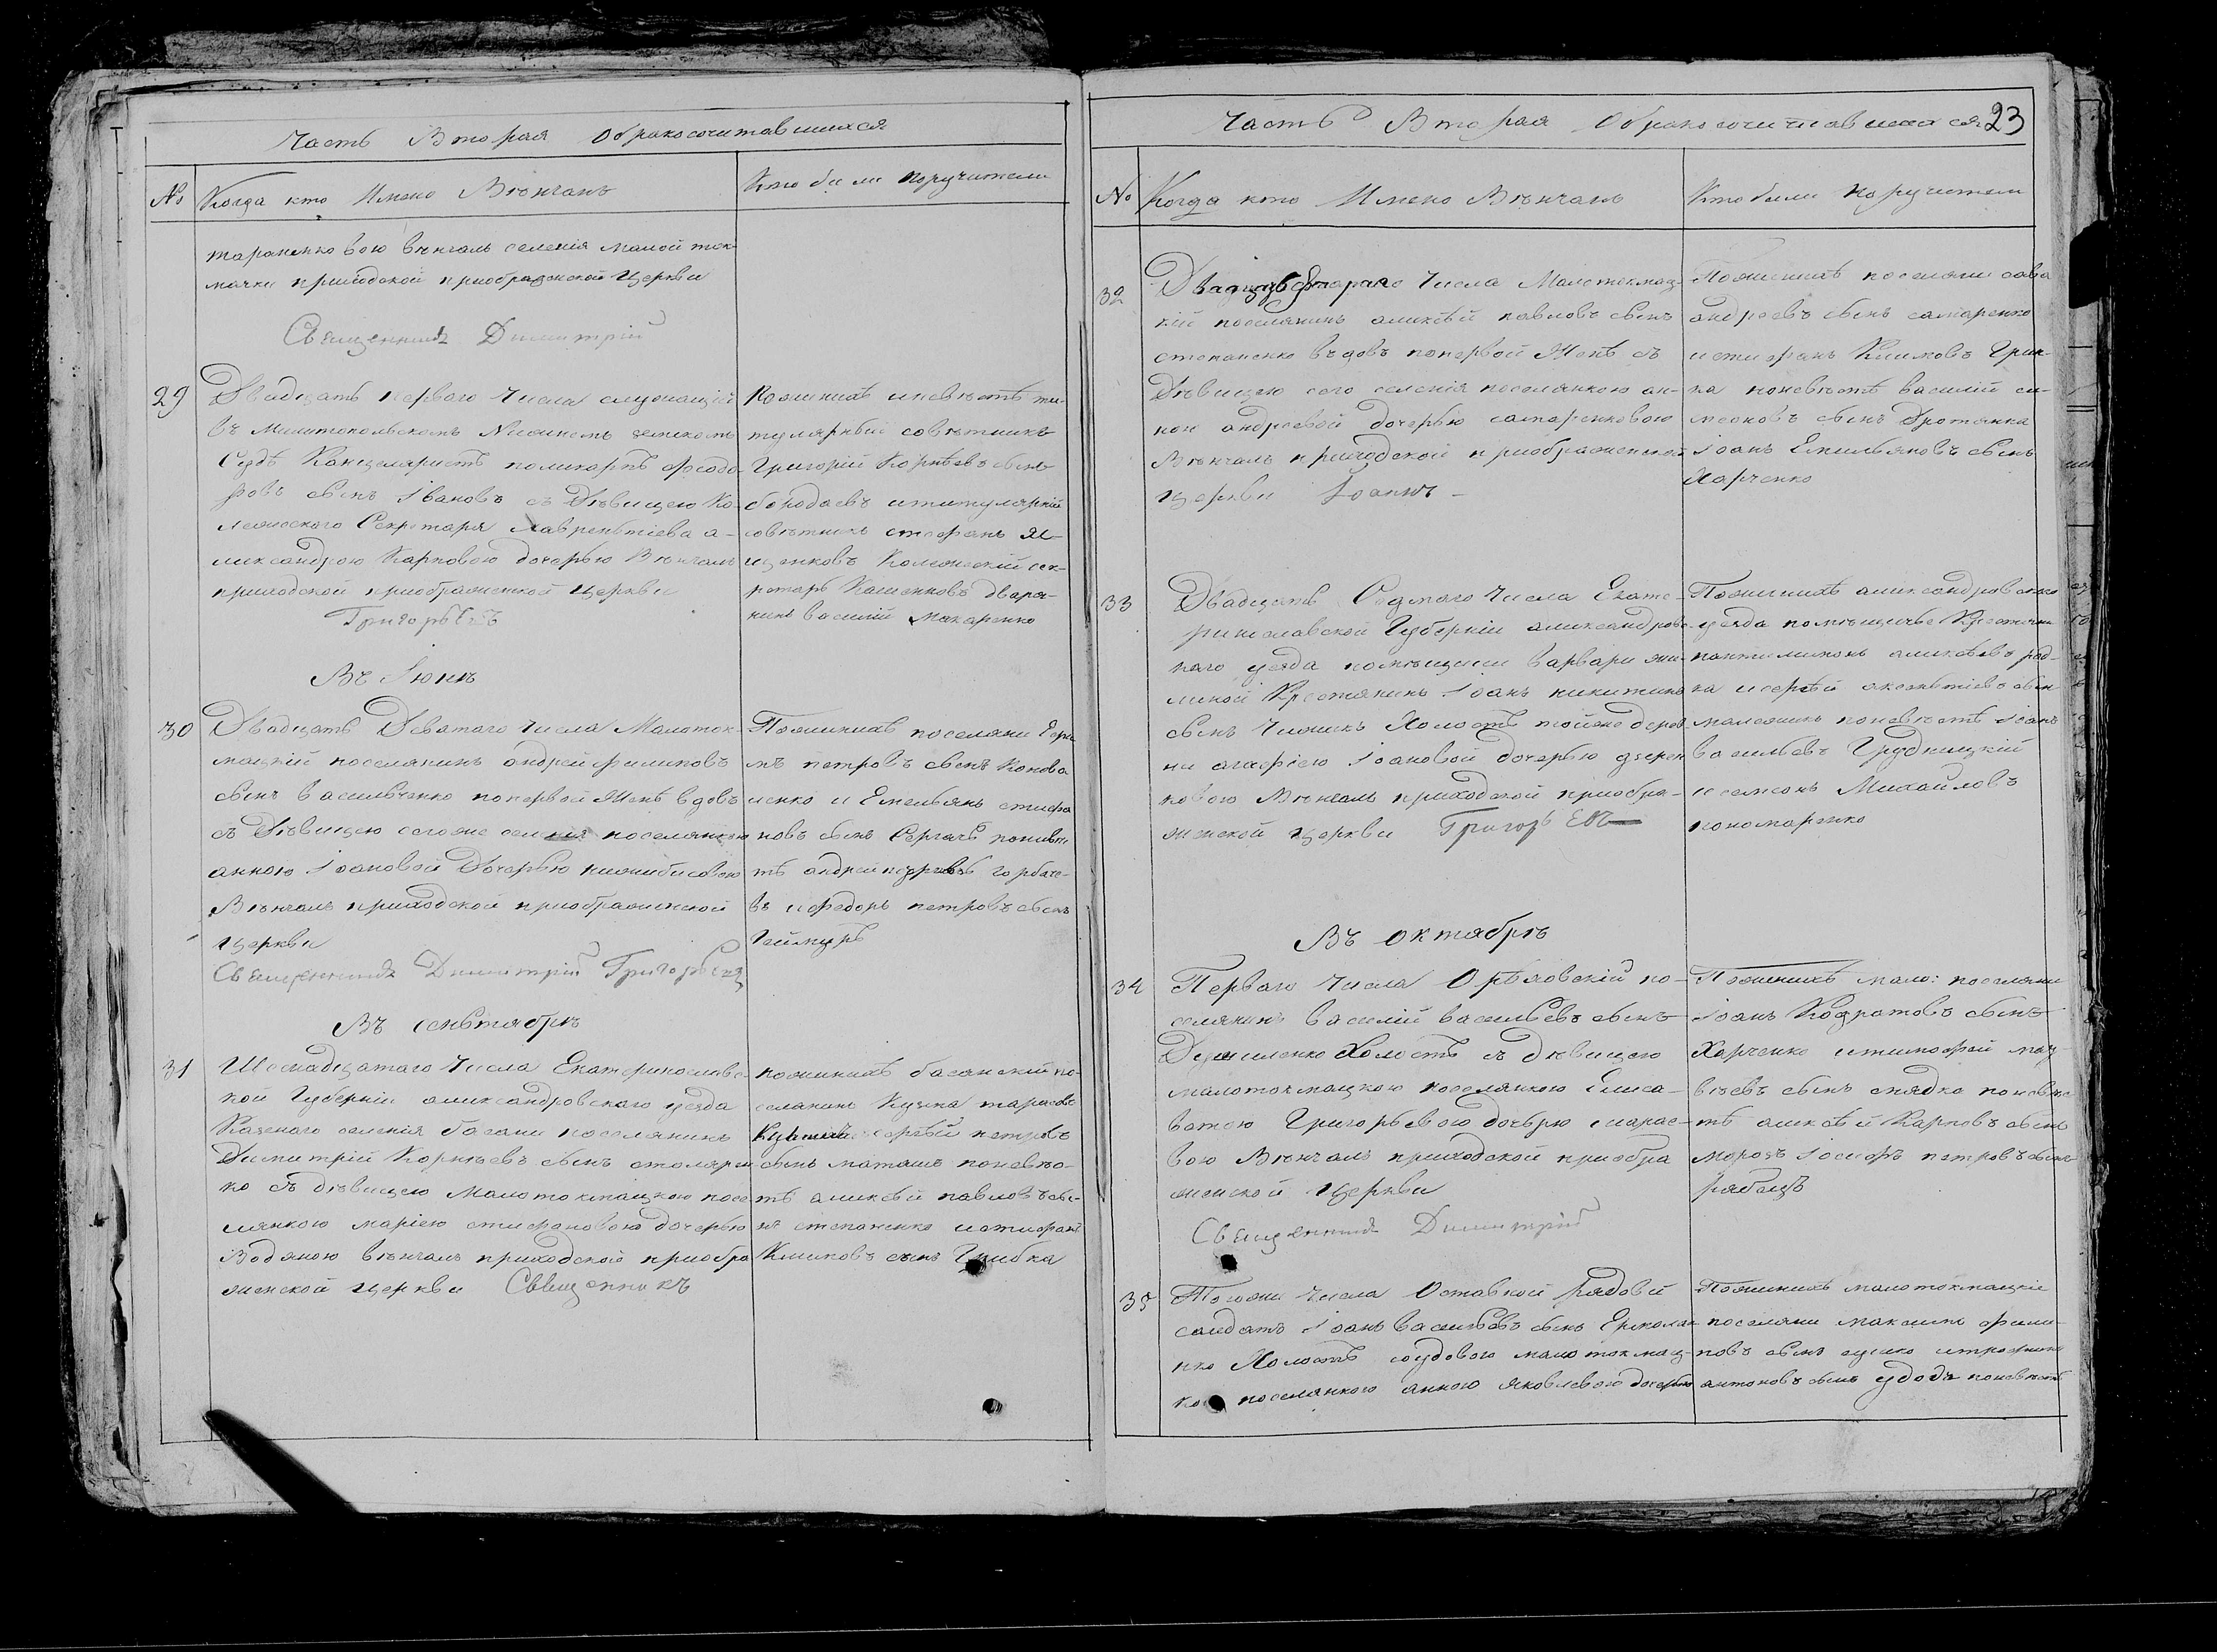 Часть Вторая Обракосочитавшихся
№ Когда кто Имено Вѣнчанъ
Кто били поручители
тараненковою вѣнчалъ селенія малой ток-
мачки приходской приображской Церкви
Священникъ Димитрій
29 Двадцать перваго Числа служащій
въ Милитопольскомъ Нижнемъ земскомъ
Судѣ Канцеляристъ поликарпъ федо-
ровъ сынъ Івановъ съ Дѣвицею Ко-
лежского Секретаря Лаврентіева а-
лександрою Карповою дочерью Вѣнчалъ
приходской приображенской церкви
Григорьевъ
По жинихѣ и невѣстѣ ти-
тулярный совѣтникъ
Григорій Корнѣевъ сынъ
бородаевъ ититулярній
совѣтникъ стефанъ
Колежскій сек-
ретарь дваря-
нинъ василій Макаренко
Въ Іюнѣ
30 Двадцать Деватого Числа Малоток-
мацкій поселянинъ андрей филиповъ
сынъ васильченко поперво́й Женѣ вдовъ
съ Дѣвицею сегоже селенія поселянкою
анною Іоановой Дочерью
Вѣнчалъ приходской приображенской
церкви
Священникъ Димитрій Григорьевъ
Пожинихѣ поселяни
петровъ сынъ Конова
ленко и Емельянъ стефа
новъ сынъ Сергачъ поневѣс
тѣ андрей Горбаче-
въ ифедоръ петровъ сынъ
Геймуръ
Въ сеньтябрѣ
31 Шеснадцатаго Числа Екатеринославс-
кой Губерніи александровскаго уезда
Казенаго селенія басани поселянинъ
Димитрій Корнѣевъ сынъ столяри
ко съ дѣвицею Малотокмацкою посе-
лянкою маріею стифановою дочерью
Водяною вѣнчалъ приходской приобра
женской церкви Священникъ
пожинихѣ басанскій по-
селянинъ тарасовъ
сергѣй петровъ
сынъ поневѣс-
тѣ алексѣй павловъ сы-
нъ степаненко истифанъ
Климовъ сынъ Грибка
Часть Вторая Обракосочитавшихся 23
№ Когда кто Имено Вѣнчанъ
Кто били поручители
32 Двадцать втораго Числа Малотокмац-
кій поселянинъ алексѣй павловъ сынъ
степаненко въдовъ поперво́й Женѣ съ
Дѣвицею сего селенія поселянкою ан-
ною андреевой дочерью самаренковою
Вѣнчалъ приходской приображенской
церкви Іоаннъ
Пожинихѣ поселяни сава
андреевъ сынъ самаренко
истифанъ Климовъ Гриб-
ка поневѣстѣ василій си-
меоновъ сынъ
Іоанъ Емильяновъ сынъ
Харченко
33 Двадцать Седмого Числа Екате-
ринославской Губерніи александровс-
каго уезда помѣщици варвари
Крестянинъ Іоанъ никитинъ
сынъ Чижикъ Холостъ тойже дерев
ни агафіею Іоановой дочерью
ковою Вѣнчалъ приходской приобра-
женской церкви Григорьевъ
Пожинихѣ александровского
уезда помѣщичье Крестяни
пантилимонъ алексѣевъ
ка исергѣй сынъ
поневѣстѣ Іоанъ
васильевъ Грудницкій
исемеонъ Михайловъ
пономаренко
Въ октябрѣ
34 Перваго Числа Орѣховскій по-
селянинъ василій васильевъ сынъ
Холостъ съ дѣвицею
малотокмацкою поселянкою Елиса-
ветою Григорьевою дочерю
вою Вѣнчалъ приходской приобра
женской церкви
Священникъ Димитрій
Пожинихѣ мало: поселяни
Іоанъ Кодратовъ сынъ
Харченко итимофей мат-
вѣевъ сынъ снядко поневѣс-
тѣ алексѣй Карповъ сынъ
морозъ Іосифъ петровъ сынъ
рябецъ
35 Тогожи Числа Оставной рядовій
салдатъ Іоанъ васильевъ сынъ Ермолаи
нко Холостъ совдовою малотокмац-
кою поселянкою анною яковлевою дочерью
Пожинихѣ малотокмацкіе
поселяни максимъ фили-
повъ сынъ итрофимъ
антоновъ сынъ удодъ поневѣстѣ